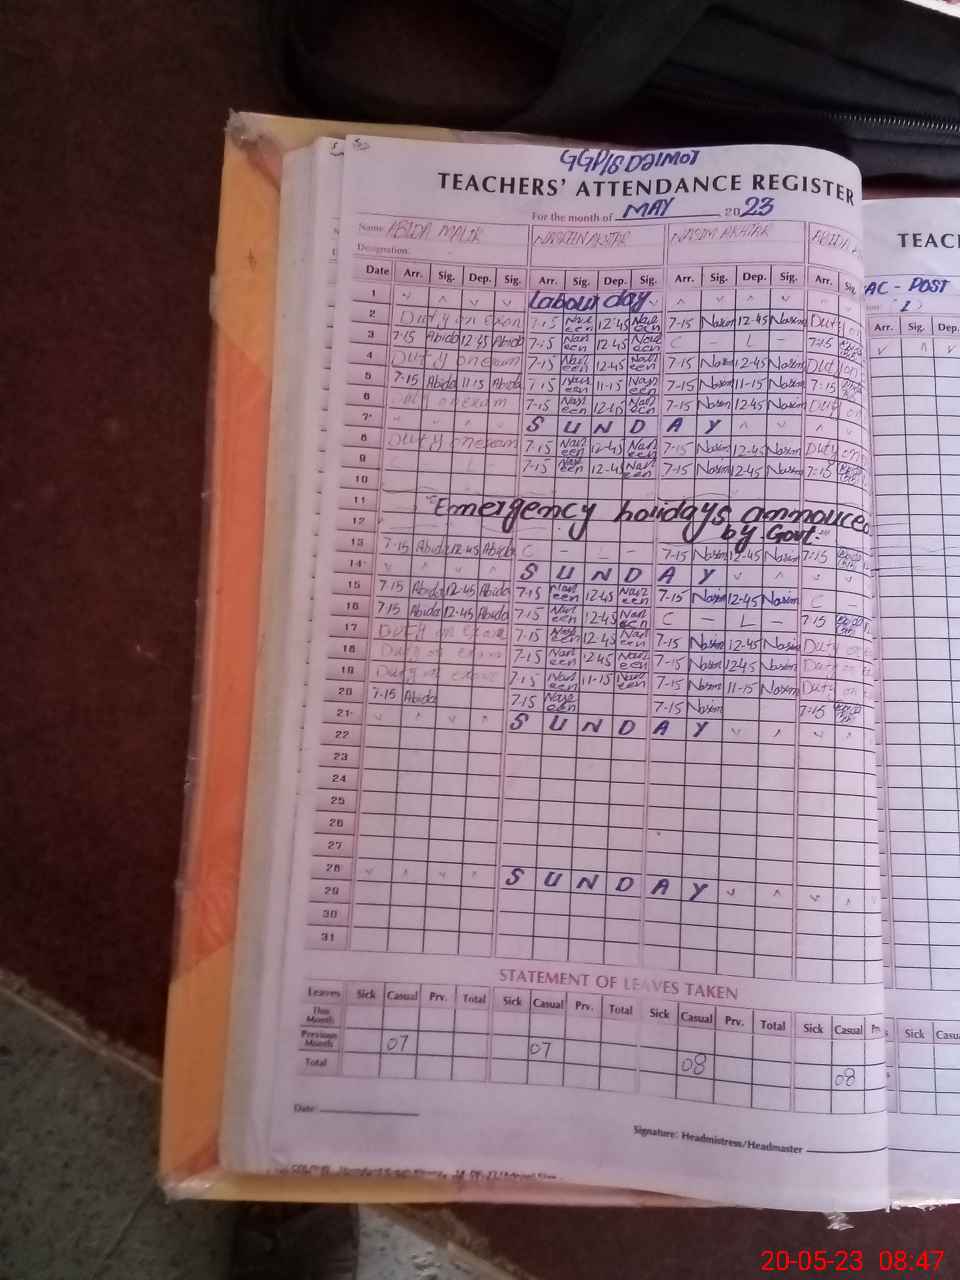 GGP/S Dalmot
TEACHERS' ATTENDANCE REGISTER
For the month of MAY 2023
Name ABIDA MALIK NASREEN AKHTAR NASIM AKHTAR ABIDA
Designation:
Date Arr. Sig. Dep. Sig. Arr. Sig. Dep. Sig. Arr. Sig. Dep. Sig. Arr. Sig.
1 Labour day
2 Duty on exam 7-15 Nasreen 12-45 Nasreen 7-15 Nasim 12-45 Nasim Duty on
3 7-15 Abida 12-45 Abida 7-15 Nasreen 12-45 Nasreen C - L - 7-15
4 Duty on exam 7-15 Nasreen 12-45 Nasreen 7-15 Nasim 12-45 Nasim Duty on
5 7-15 Abida 11-15 Abida 7-15 Nasreen 11-15 Nasreen 7-15 Nasim 11-15 Nasim 7-15
6 Duty on exam 7-15 Nasreen 12-45 Nasreen 7-15 Nasim 12-45 Nasim Duty on
7 S U N D A Y
8 Duty on exam 7-15 Nasreen 12-45 Nasreen 7-15 Nasim 12-45 Nasim Duty on
9 C L 7-15 Nasreen 12-45 Nasreen 7-15 Nasim 12-45 Nasim 7-15
10
11 "Emergency holidays annouced
12 by Govt."
13 7-15 Abida 12-45 Abida C - L - 7-15 Nasim 12-45 Nasim 7-15
14 S U N D A Y
15 7-15 Abida 12-45 Abida 7-15 Nasreen 12-45 Nasreen 7-15 Nasim 12-45 Nasim C -
16 7-15 Abida 12-45 Abida 7-15 Nasreen 12-45 Nasreen C - L - 7-15
17 Duty on exam 7-15 Nasreen 12-45 Nasreen 7-15 Nasim 12-45 Nasim Duty on
18 Duty on exam 7-15 Nasreen 12-45 Nasreen 7-15 Nasim 12-45 Nasim Duty on
19 Duty on exam 7-15 Nasreen 11-15 Nasreen 7-15 Nasim 11-15 Nasim Duty on
20 7-15 Abida 7-15 Nasreen 7-15 Nasim 7-15
21 S U N D A Y
22
23
24
25
26
27
28 S U N D A Y
29
30
31
STATEMENT OF LEAVES TAKEN
Leaves Sick Casual Prv. Total Sick Casual Prv. Total Sick Casual Prv. Total Sick Casual
This Month
Previous Month 07 07 08 08
Total
Date:
Signature: Headmistress/Headmaster
TEAC
AC - POST
(1)
Arr. Sig. Dep.
Sick
20-05-23 08:47